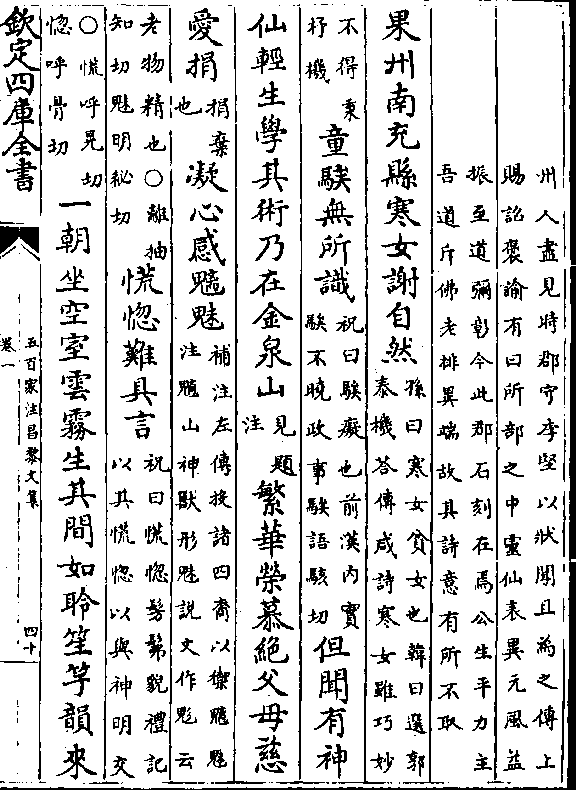 州人盡見時郡守李堅以狀聞且為之傳上
賜詔褒諭有曰所部之中靈仙表異元風益
振至道彌彰今此郡石刻在焉公生平力主
吾道斥佛老排異端故其詩意有所不取
果州南充縣寒女謝自然
孫曰寒女貧女也韓曰選郭
泰機荅傅咸詩寒女雖巧妙
不得秉
杼機
童騃無所識
祝曰騃癡也前漢内實
騃不曉政事騃語駭切
但聞有神
仙輕生學其術乃在金泉山
見題
注
繁華榮慕絶父母慈
愛捐
捐棄
也
凝心感魑魅
補注左傳投諸四裔以禦魑魅
注魑山神獸形魅説文作鬽云
老物精也○離抽
知切魅明祕切
慌惚難具言
祝曰慌惚髣髴貌禮記
以其慌惚以與神明交
○慌呼晃切
惚呼骨切
一朝坐空室雲霧生其間如聆笙竽韻來
欽定四庫全書
卷一
五百家注昌黎文集
四十